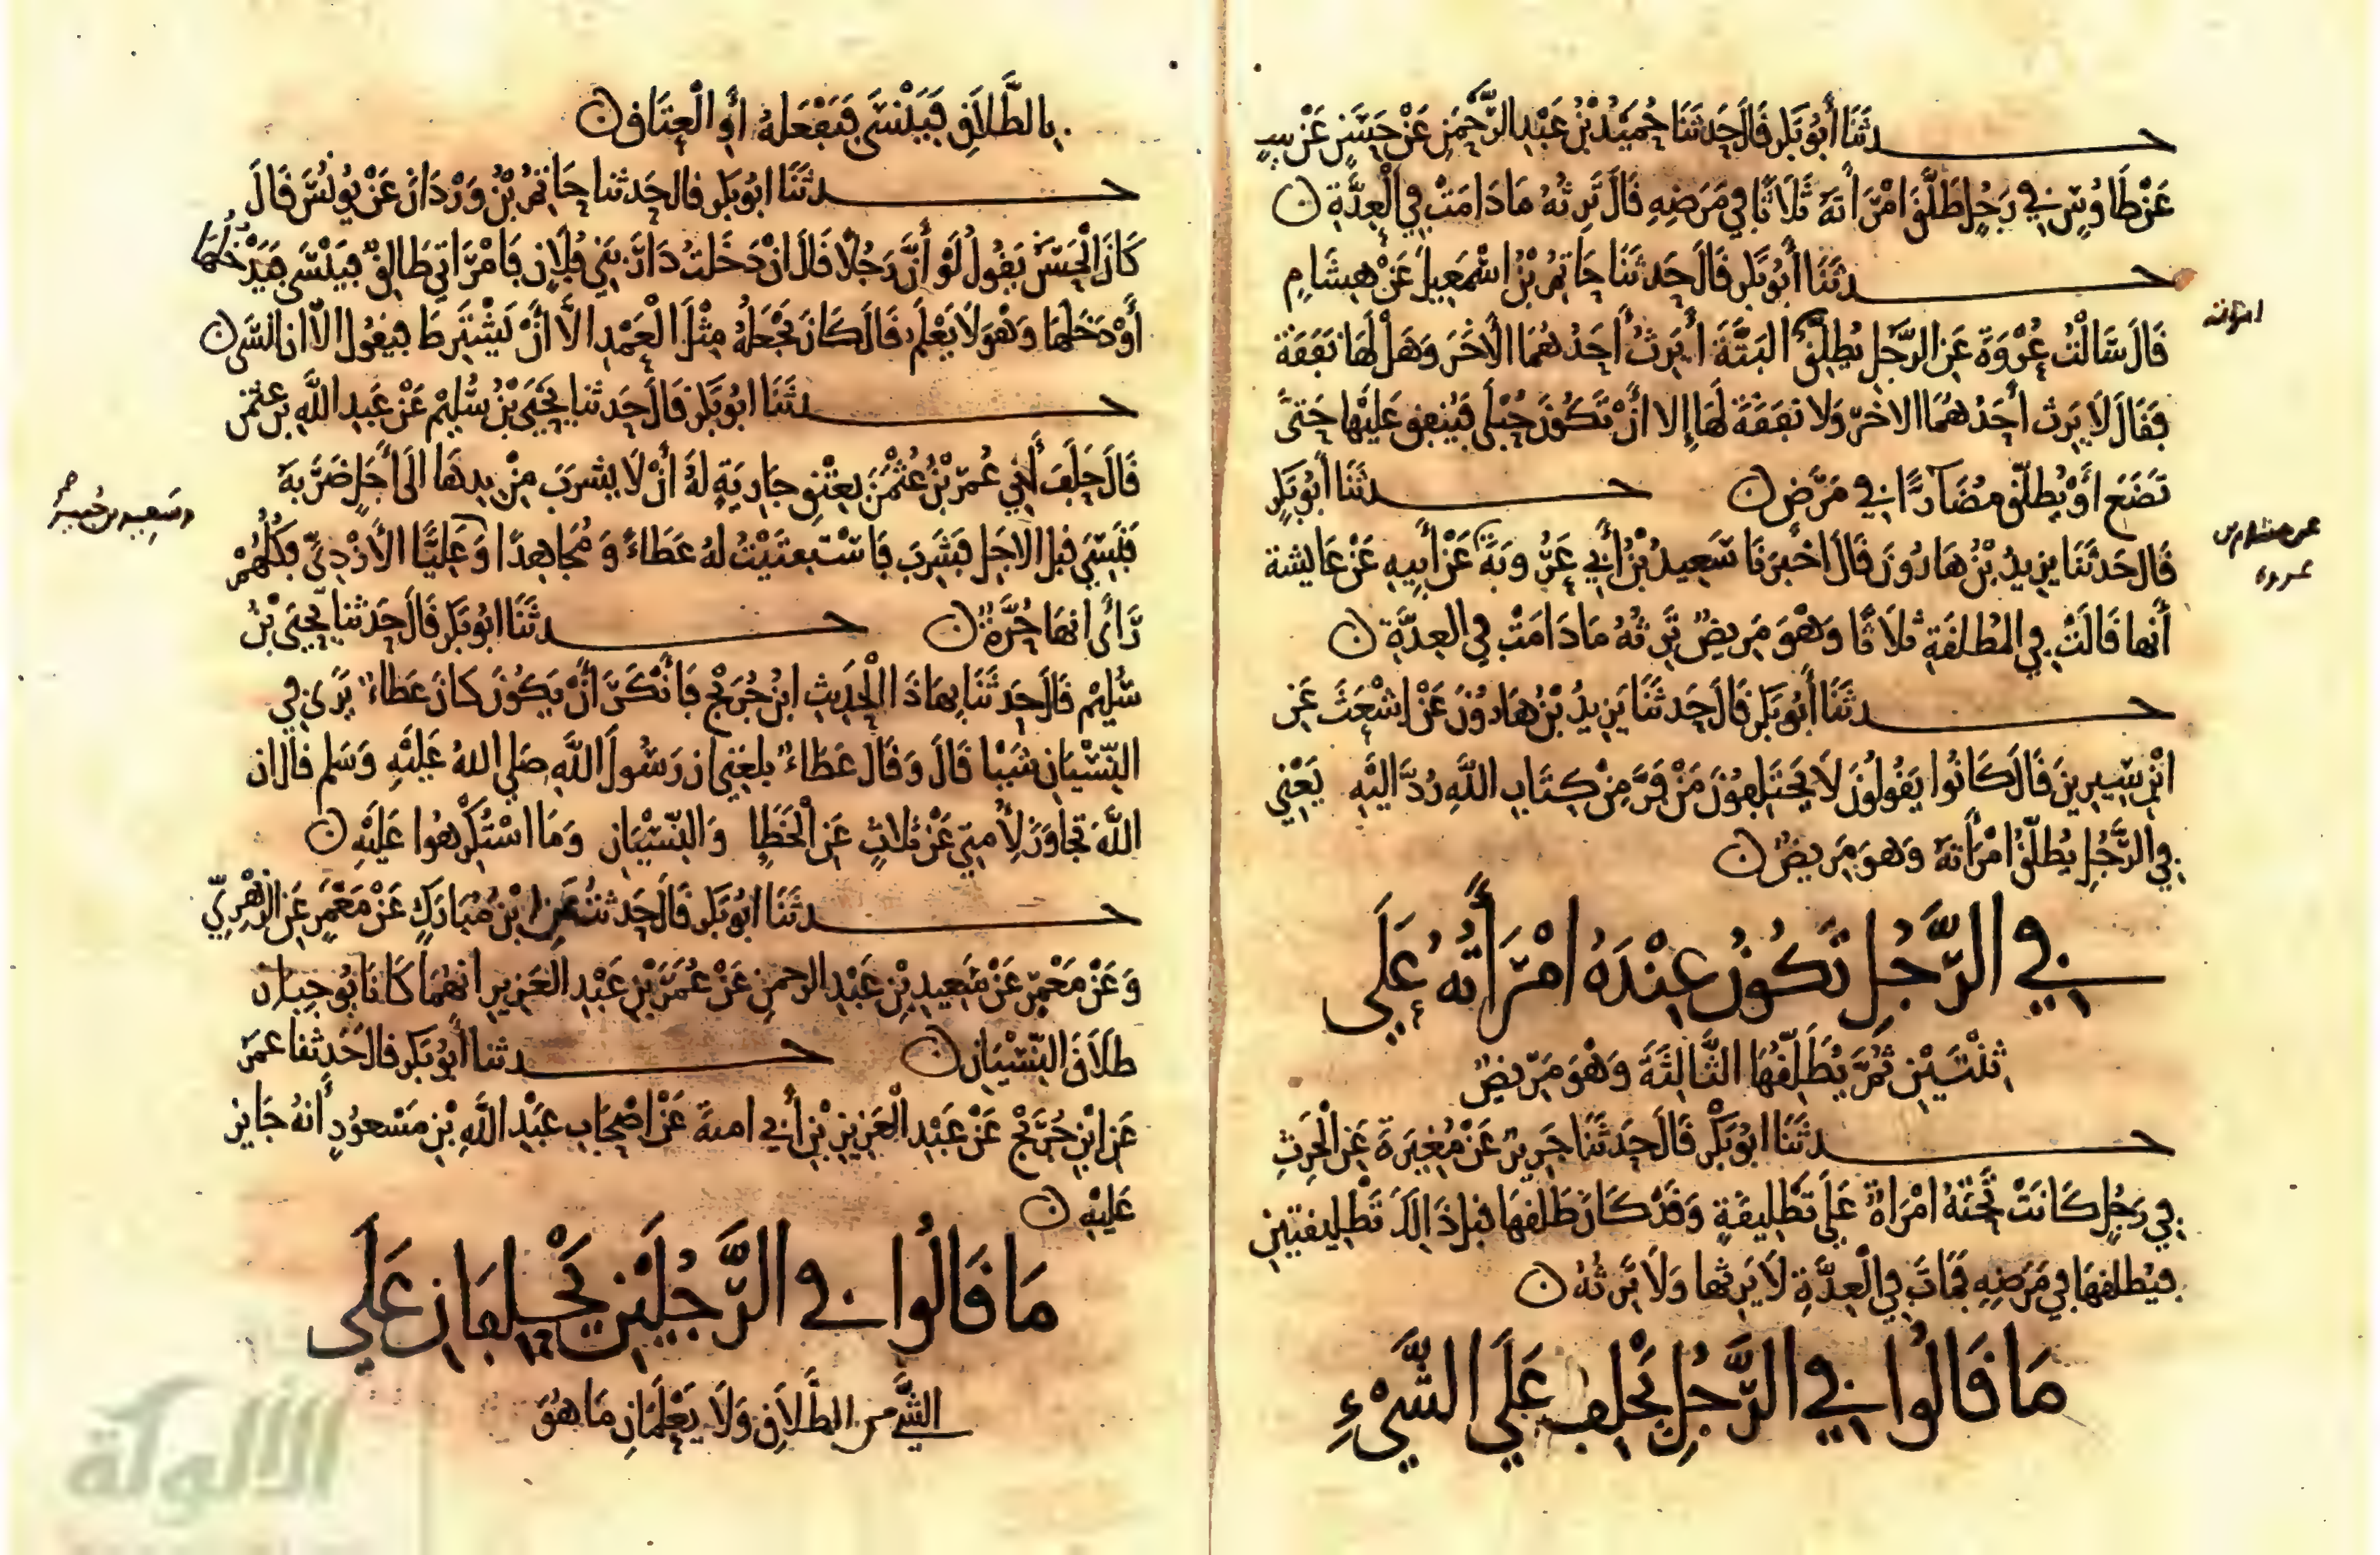 حدثنا أبو بكر قال حدثنا حميد بن عبد الرحمن عن حسن عن ليث
عن طاوس في رجل طلق امرأته ثلاثا في مرضه قال ترثه ما دامت في العدة ن
حدثنا أبو بكر قال حدثنا حاتم بن اسمعيل عن هشام
قال سالت عروة عن الرجل يطلق البتة أيرث أحدهما الأخر وهل لها نفقة
امراته
فقال لا يرث أحدهما الاخر ولا نفقة لها إلا أن تكون حبلى فينفق عليها حتى
تضع أو يطلق مضارا في مرض ن حدثنا أبو بكر
قال حدثنا يزيد بن هارون قال اخبرنا سعيد بن أبي عروبة عن أبيه عن عايشة
عن هشام بن
عروة
أنها قالت في المطلقة ثلاثا وهو مريض ترثه ما دامت في العدة ن
حدثنا أبو بكر قال حدثنا يزيد بن هارون عن اشعث عن
ابن سيرين قال كانوا يقولون لا يختلفون من فر من كتاب الله رد اليه يعني
في الرجل يطلق امرأته وهو مريض ن
في الرجل تكون عنده امرأته على
ثنتين ثم يطلقها الثالثة وهو مريض
حدثنا ابو بكر قال حدثنا جرير عن مغيرة عن الحرث
في رجل كانت تحته امراة على تطليقة وقد كان طلقها قبل ذالك تطليقتين
فيطلقها في مرضه فمات في العدة لا يرثها ولا ترثه ن
ما قالوا في الرجل يحلف على الشيء
بالطلاق فينسى فيفعله أو العتاق ن
حدثنا ابو بكر قال حدثنا حاتم بن وردان عن يونس قال
كان الحسن يقول لو أن رجلا قال ان دخلت دار بني فلان فامراتي طالق فينسى فيدخلها
أو دخلها وهو لا يعلم قال كان يجعله مثل العمد الا أن يشترط فيقول الا ان انسى ن
حدثنا ابو بكر قال حدثنا يحيى بن سليم عن عبد الله بن عثمن
قال حلف أخي عمر بن عثمن بعتق جارية له أن لا يشرب من يدها الى أجل ضربه
فنسي قبل الاجل فشرب فاستفتيت له عطاء ومجاهدا وعليا الأزدي فكلهم
وسعيد بن جبير صح
رأى انها حرة ن حدثنا ابو بكر قال حدثنا يحيى بن
سليم قال حدثنا بهاذا الحديث ابن جريج فأنكر أن يكون كان عطاء يرى في
النسيان شيا قال وقال عطاء بلغني ان رسول الله صلى الله عليه وسلم قال ان
الله تجاوز لأمتي عن ثلاث عن الخطإ والنسيان وما استكرهوا عليه ن
حدثنا ابو بكر قال حدثنا ابن مبارك عن معمر عن الزهري
وعن معمر عن سعيد بن عبد الرحمن عن عمر بن عبد العزيز انهما كانا يوجبان
طلاق النسيان ن حدثنا أبو بكر قال حدثنا عمر
عن ابن جريج عن عبد العزيز بن أبي امية عن اصحاب عبد الله بن مسعود أنه جايز
عليه ن
ما قالوا في الرجلين يحلفان على
الشيء من الطلاق ولا يعلمان ما هو
الألوكة